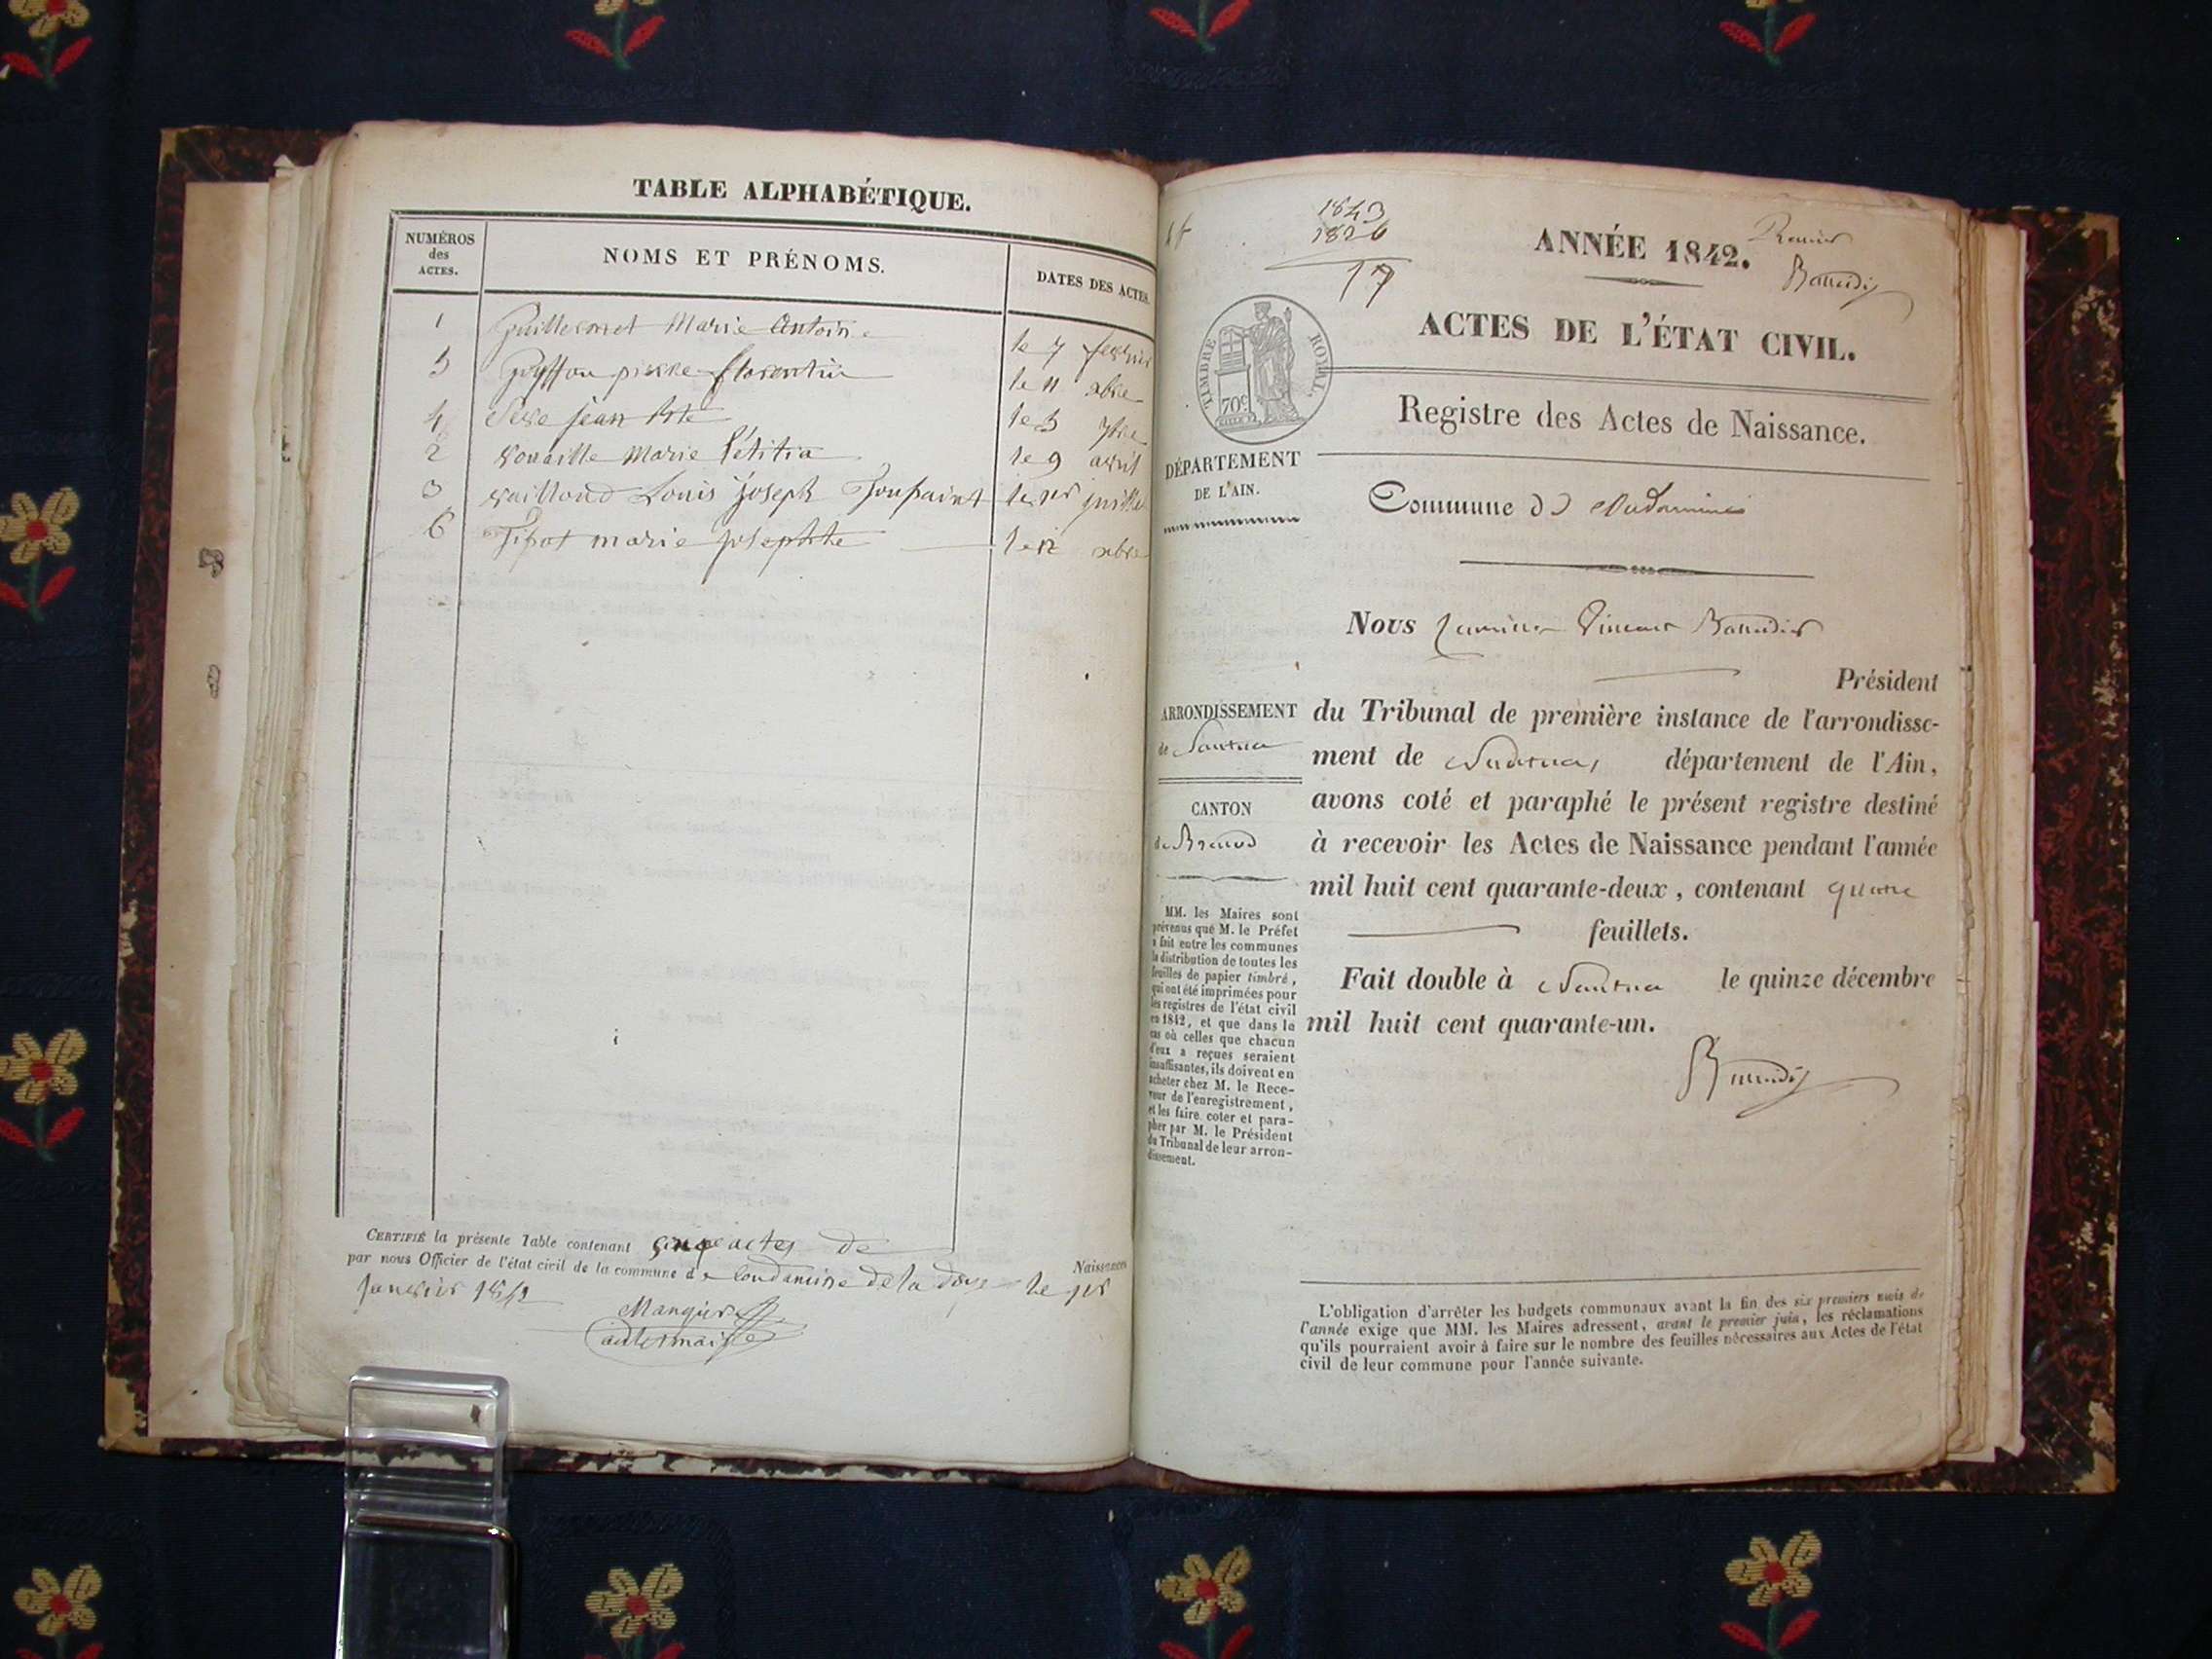 TABLE ALPHABÉTIQUE.
NUMÉROS
des
ACTES.
NOMS ET PRÉNOMS.
DATES DES ACTES.
1 Marie Antoine le 7
5 pierre florentin le 11 xbre
4 jean Bte le 3 7bre
2 Marie létitia le 9 avril
3 Louis joseph le 1er juillet
6 marie josephte le 12 xbre
CERTIFIÉ la présente Table contenant actes de Naissances
par nous Officier de l'état civil de la commune de Condamine de la Doye le 1er
janvier 1842
1843
1826
17
ANNÉE 1842.
Premier
ACTES DE L'ÉTAT CIVIL.
TIMBRE ROYAL.
70c
Registre des Actes de Naissance.
DÉPARTEMENT
DE L'AIN.
Commune de
Nous Vincent
Président
ARRONDISSEMENT
de Nantua
CANTON
de Brénod
du Tribunal de première instance de l'arrondisse-
ment de Nantua, département de l'Ain,
avons coté et paraphé le présent registre destiné
à recevoir les Actes de Naissance pendant l'année
mil huit cent quarante-deux, contenant quatre
feuillets.
Fait double à Nantua le quinze décembre
mil huit cent quarante-un.
MM. les Maires sont
prévenus que M. le Préfet
a fait entre les communes
la distribution de toutes les
feuilles de papier timbré,
qui ont été imprimées pour
les registres de l'état civil
en 1842, et que dans le
cas où celles que chacun
d'eux a reçues seraient
insuffisantes, ils doivent en
acheter chez M. le Rece-
veur de l'enregistrement,
et les faire coter et para-
pher par M. le Président
du Tribunal de leur arron-
dissement.
L'obligation d'arrêter les budgets communaux avant la fin des six premiers mois de
l'année exige que MM. les Maires adressent, avant le premier juin, les réclamations
qu'ils pourraient avoir à faire sur le nombre des feuilles nécessaires aux Actes de l'état
civil de leur commune pour l'année suivante.